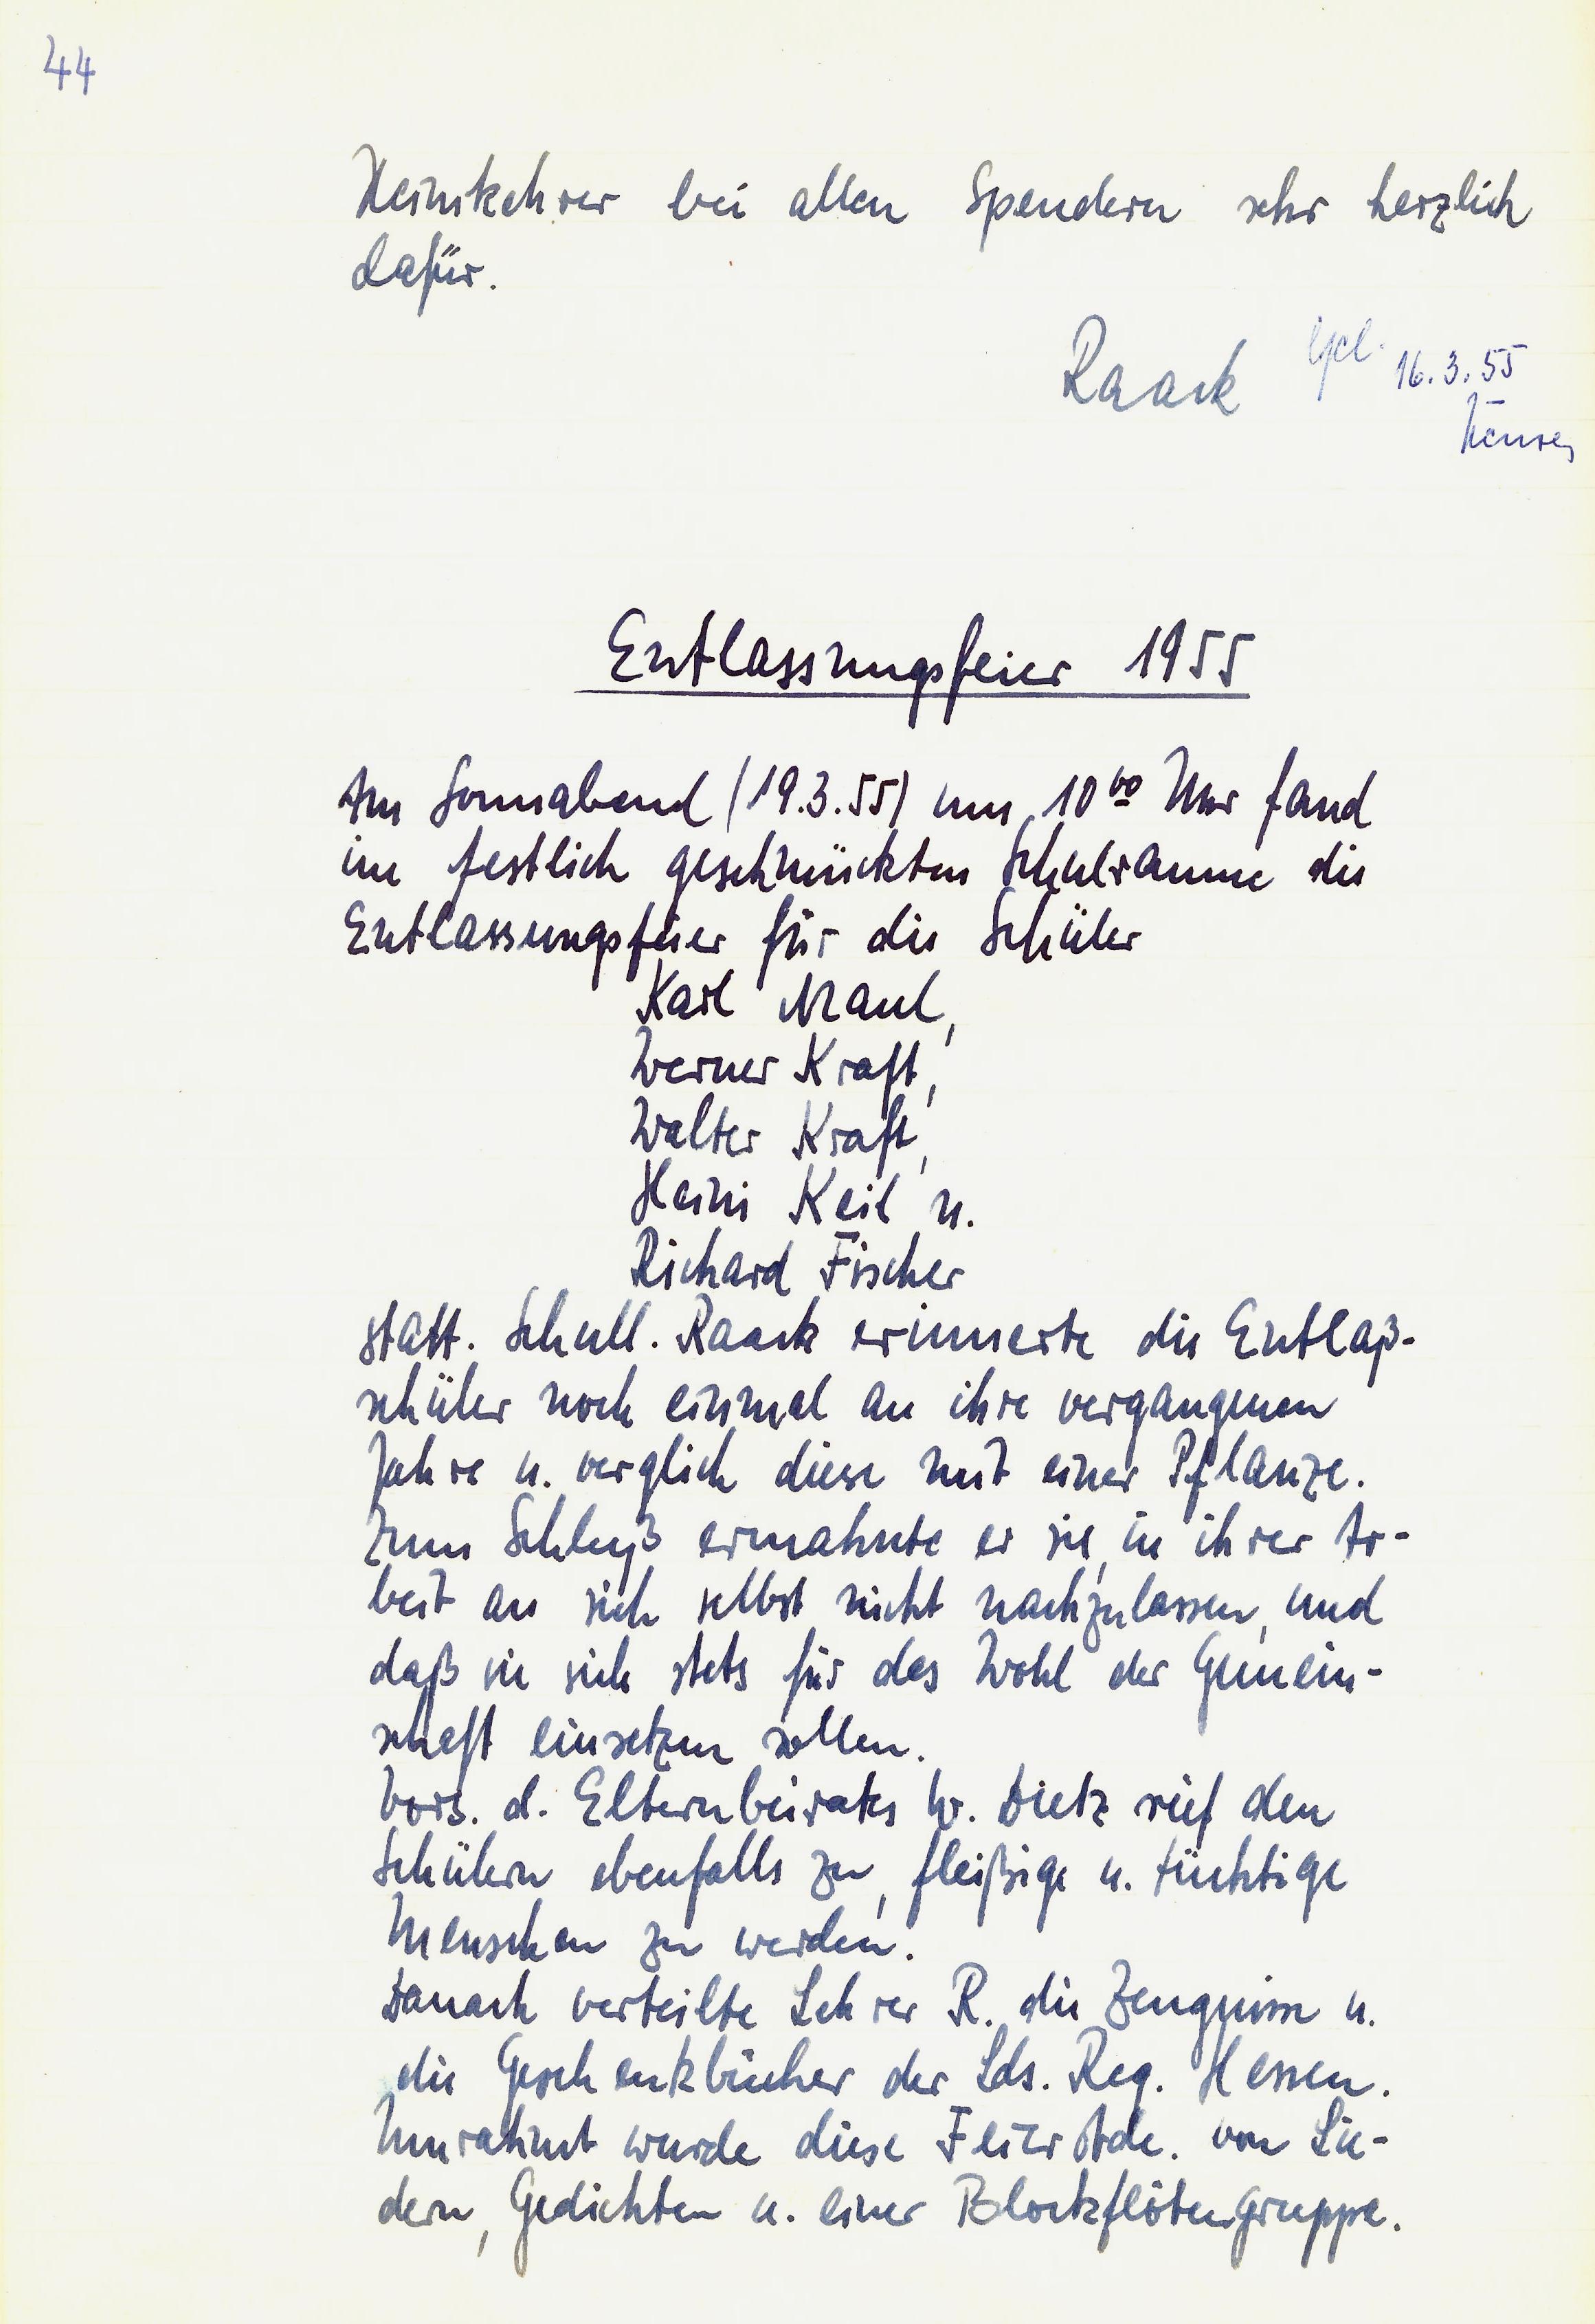 44
Heimkehrer bei allen Spendern sehr herzlich
dafür.
Raack
16.3.55
Entlassungsfeier 1955
Am Sonnabend (19.3.55) um 10⁰⁰ Uhr fand
im festlich geschmückten Schulraume die
Entlassungsfeier für die Schüler
Karl Maul,
Werner Kraft,
Walter Kraft,
Heini Keil u.
Richard Fischer
statt. Schull. Raack erinnerte die Entlaß-
schüler noch einmal an ihre vergangenen
Jahre u. verglich diese mit einer Pflanze.
Zum Schluß ermahnte er sie, in ihrer Ar-
beit an sich selbst nicht nachzulassen, und
daß sie sich stets für das Wohl der Gemein-
schaft einsetzen sollen.
Vors. d. Elternbeirates W. Dietz rief den
Schülern ebenfalls zu, fleißige u. tüchtige
Menschen zu werden.
Danach verteilte Lehrer R. die Zeugnisse u.
die Geschenkbücher der Lds. Reg. Hessen.
Umrahmt wurde diese Feierstde. von Lie-
dern, Gedichten u. einer Blockflötengruppe.